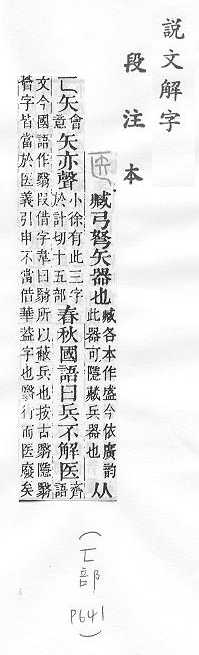 説文解字
段注本
医
臧弓弩矢器也臧各本作盛今依廣韵此器可隱藏兵器也从
匸矢會意矢亦聲小徐有此三字於計切十五部春秋國語曰兵不解医齊語
文今國語作翳叚借字韋曰翳所以蔽兵也按古翳隱翳
薈字皆當於医義引申不當借華葢字也翳行而医廢矣
(匸部 P641)